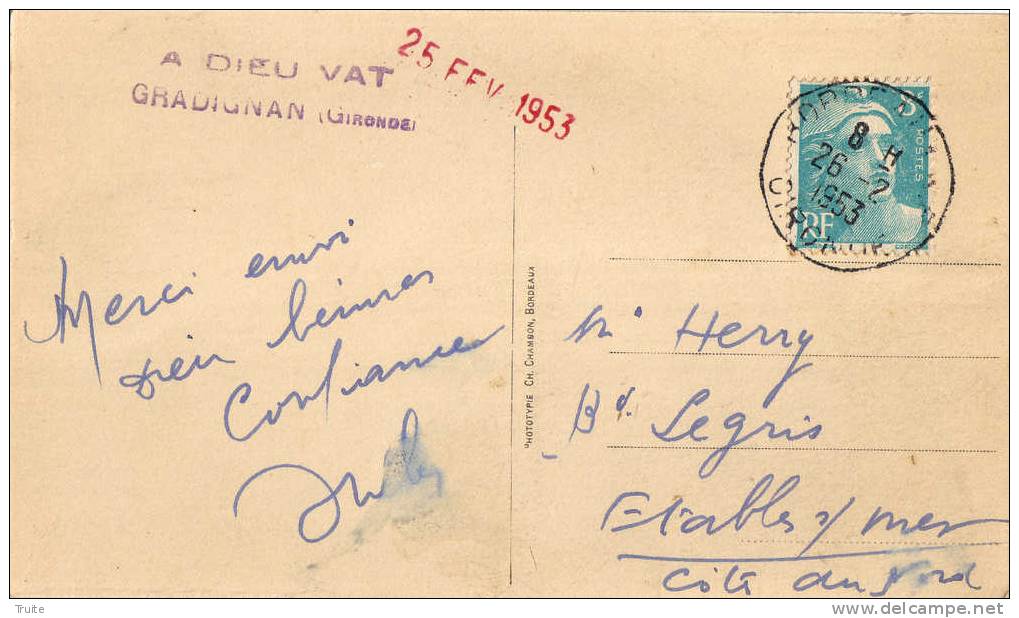 A DIEU VAT
GRADIGNAN (GIRONDE)
25 FEV 1953
8 H
26 - 2
1953
POSTES
RF
Merci
Dieu
Confiance
PHOTOTYPIE CH. CHAMBON, BORDEAUX
Mr Herry
Bd. Legris
Etables s/ mer
Côte du Nord
Trute
delcampe.net